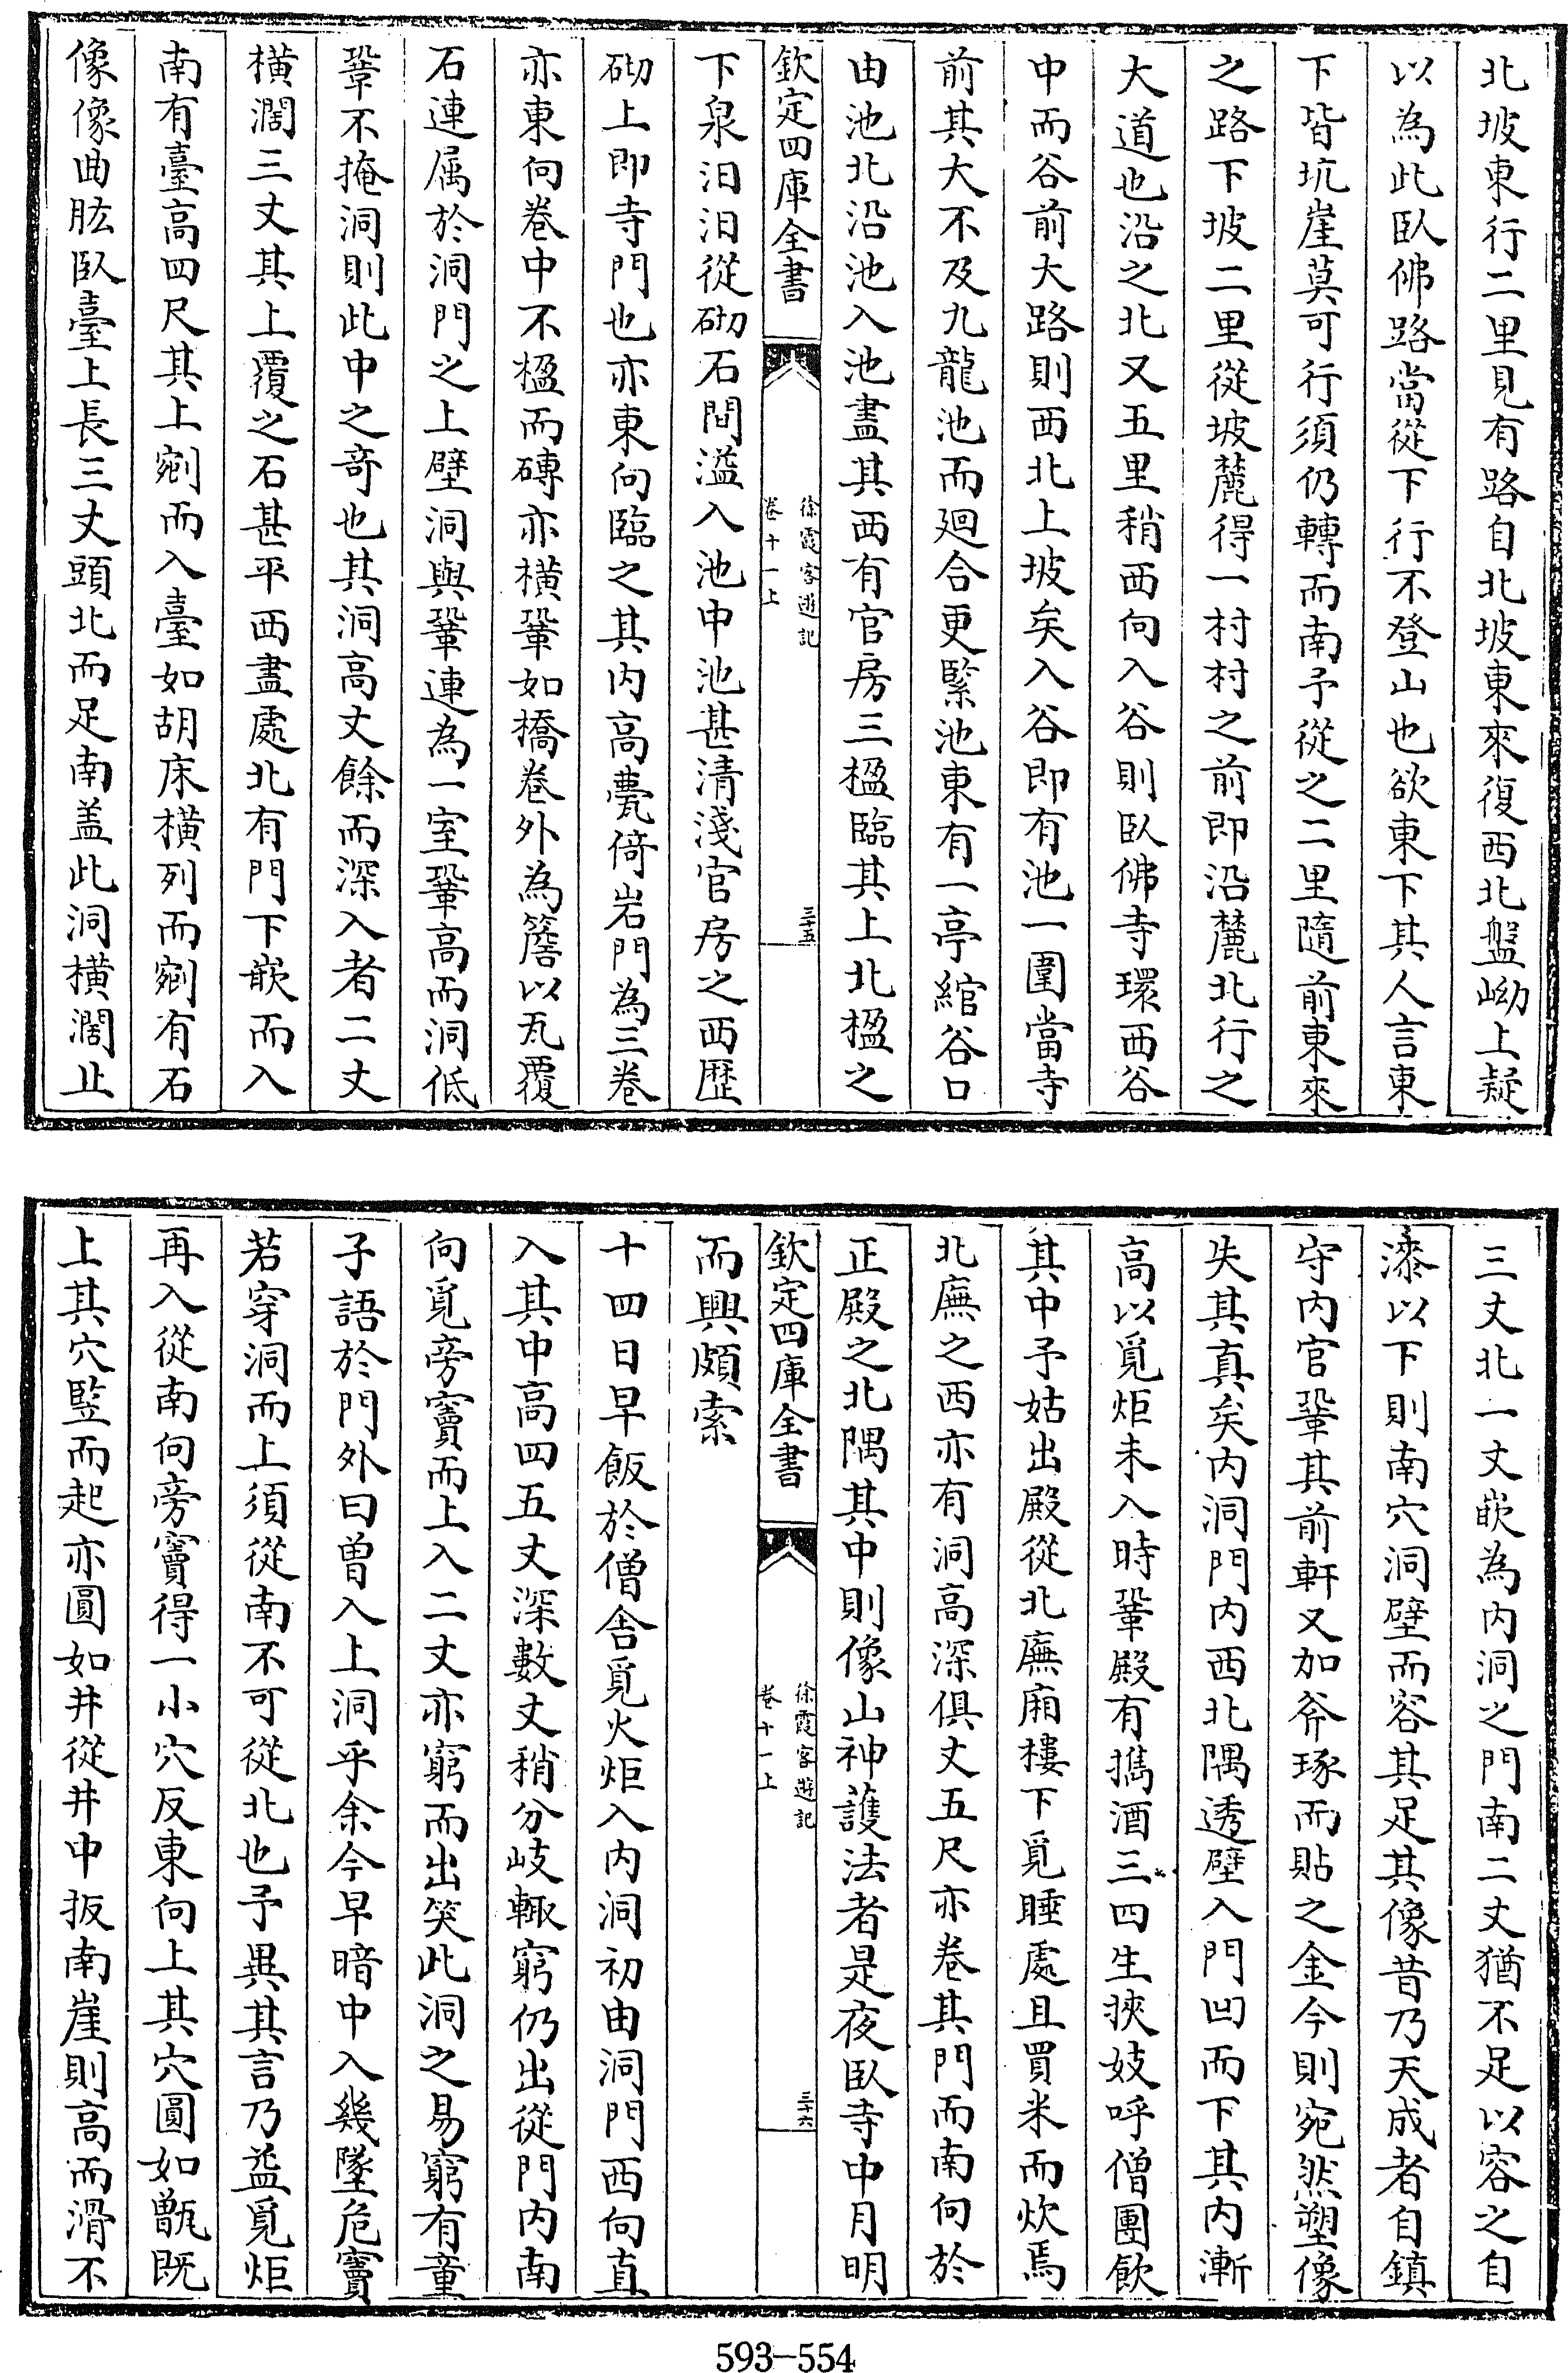 北坡東行二里見有路自北坡東來復西北盤坳上疑
以為此臥佛路當從下行不登山也欲東下其人言東
下皆坑崖莫可行須仍轉而南予從之二里隨前東來
之路下坡二里從坡麓得一村村之前即沿麓北行之
大道也沿之北又五里稍西向入谷則臥佛寺環西谷
中而谷前大路則西北上坡矣入谷即有池一圍當寺
前其大不及九龍池而迴合更緊池東有一亭綰谷口
由池北沿池入池盡其西有官房三楹臨其上北楹之
欽定四庫全書
徐霞客遊記
卷十一上
三十五
下泉汨汨從砌石間溢入池中池甚清淺官房之西歷
砌上即寺門也亦東向臨之其内高甍倚岩門為三卷
亦東向卷中不楹而磚亦横鞏如橋卷外為簷以瓦覆
石連屬於洞門之上壁洞與鞏連為一室鞏高而洞低
鞏不掩洞則此中之竒也其洞高丈餘而深入者二丈
横濶三丈其上覆之石甚平西盡處北有門下嵌而入
南有臺高四尺其上剜而入臺如胡床横列而剜有石
像像曲肱臥臺上長三丈頭北而足南盖此洞横濶止
三丈北一丈嵌為内洞之門南二丈猶不足以容之自
漆以下則南穴洞壁而容其足其像昔乃天成者自鎮
守内官鞏其前軒又加斧琢而貼之金今則宛然塑像
失其真矣内洞門内西北隅透壁入門凹而下其内漸
高以覓炬未入時鞏殿有攜酒三四生挾妓呼僧團飲
其中予姑出殿從北廡廂樓下覓睡處且買米而炊焉
北廡之西亦有洞高深俱丈五尺亦卷其門而南向於
正殿之北隅其中則像山神護法者是夜臥寺中月明
欽定四庫全書
徐霞客遊記
卷十一上
三十六
而興頗索
十四日早飯於僧舍覓火炬入内洞初由洞門西向直
入其中高四五丈深數丈稍分岐輙窮仍出從門内南
向覓旁竇而上入二丈亦窮而出笑此洞之易窮有童
子語於門外曰曽入上洞乎余今早暗中入幾墜危竇
若穿洞而上須從南不可從北也予異其言乃益覓炬
再入從南向旁竇得一小穴反東向上其穴圓如甑既
上其穴竪而起亦圓如井從井中扳南崖則高而滑不
593-554